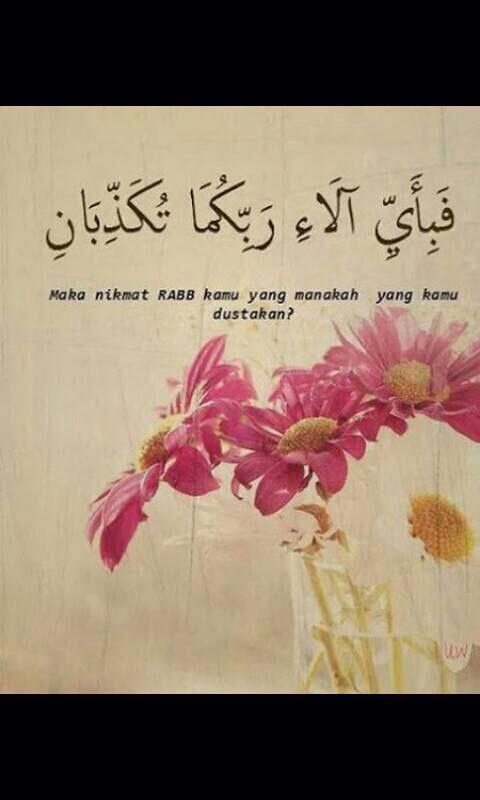 فَبِأَيِّ آلَاءِ رَبِّكُمَا تُكَذِّبَانِ
Maka nikmat RABB kamu yang manakah yang kamu
dustakan?
UW